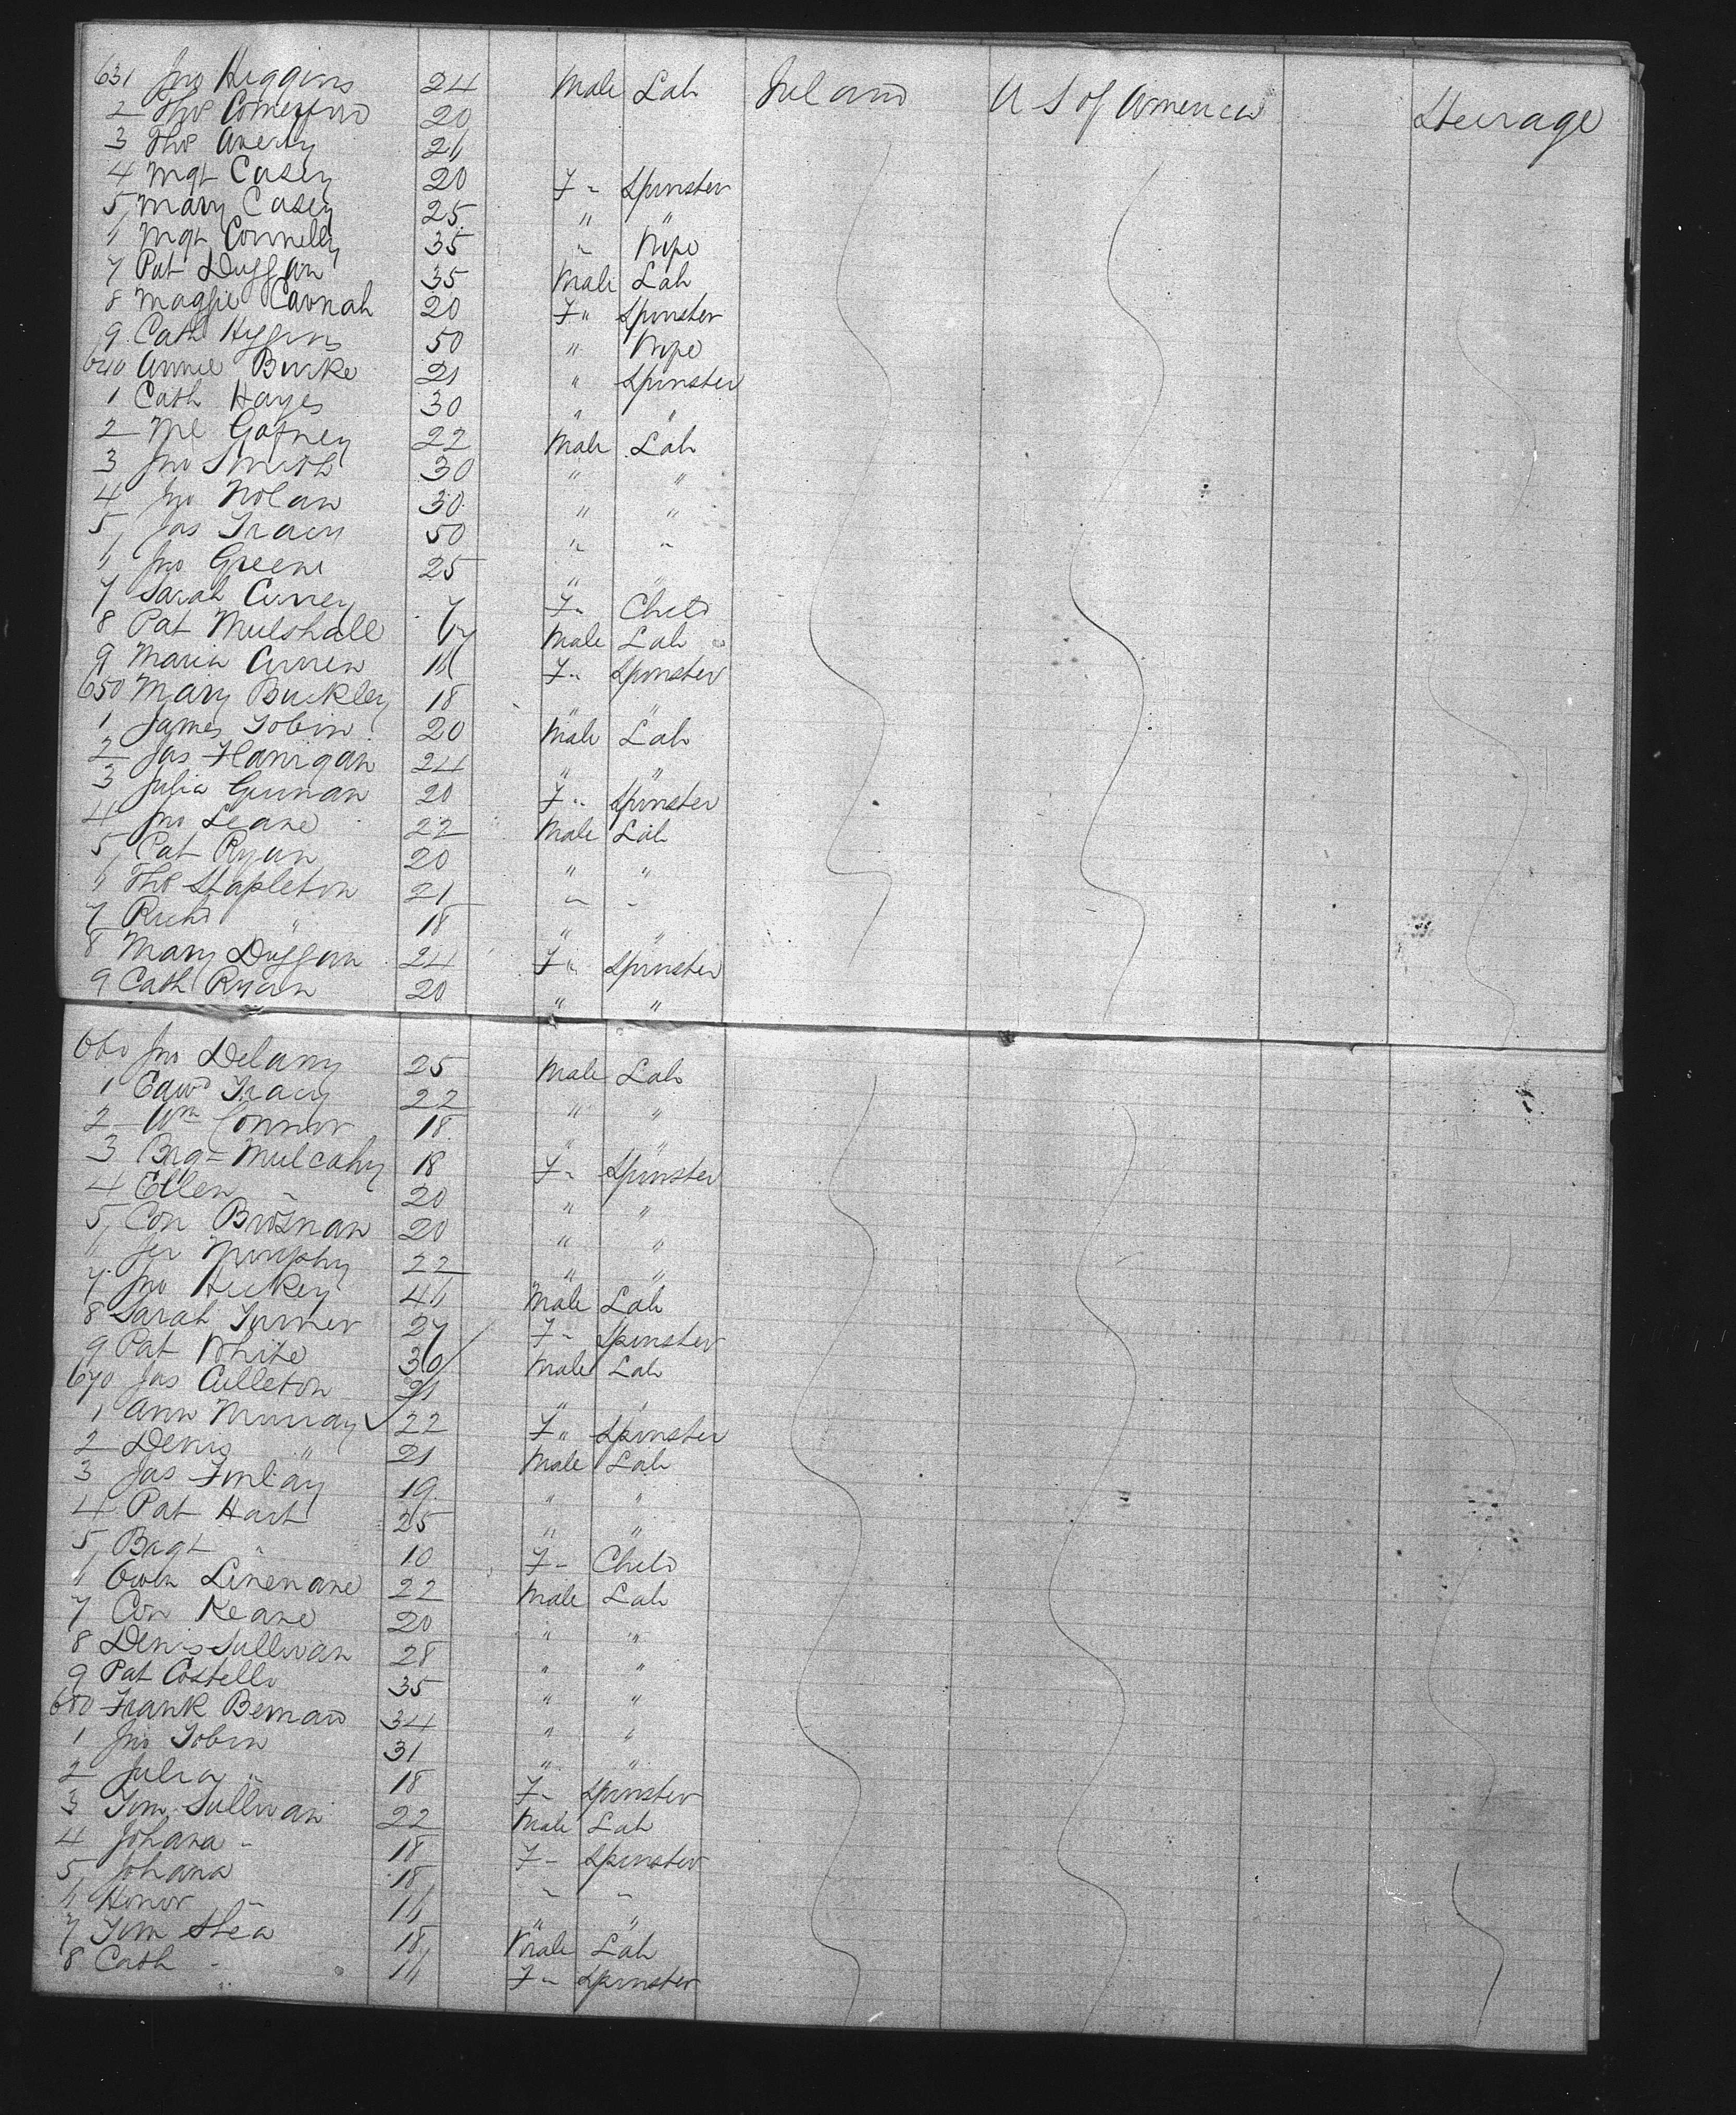 631 Jno Higgins 24 Male Lab Ireland U S of America Steerage
2 Thos Comerford 20
3 Thos Averly 26
4 Mgt Casey 20 F " Spinster
5 Mary Casey 25 " "
6 Mgt Connelly 35 " Wife
7 Pat Duggan 35 Male Lab
8 Maggie Cavnah 20 F " Spinster
9 Cath Higgins 50 " Wife
640 Annie Burke 21 " Spinster
1 Cath Hayes 30 " "
2 Ml Gafney 22 Male Lab
3 Jno Smith 30 " "
4 Jno Nolan 30 " "
5 Jas Tracy 50 " "
6 Jno Greene 25 " "
7 Sarah Currey 7 F " Child
8 Pat Mulshall 17 Male Lab
9 Maria Curren 16 F " Spinster
650 Mary Buckley 18 " "
1 James Tobin 20 Male Lab
2 Jas Flanigan 24 " "
3 Julia Guinan 20 F " Spinster
4 Jno Leane 22 Male Lab
5 Pat Ryan 20 " "
6 Thos Stapleton 21 " "
7 Richd " 18 " "
8 Mary Duggan 24 F " Spinster
9 Cath Ryan 20 " "
660 Jno Delany 25 Male Lab
1 Edwd Tracy 22 " "
2 Wm Connor 18 " "
3 Brgt Mulcahy 18 F " Spinster
4 Ellen " 20 " "
5 Con Brosnan 20 " "
6 Jer Murphy 22 " "
7 Jno Hickey 46 Male Lab
8 Sarah Turner 27 F " Spinster
9 Pat White 30 Male Lab
670 Jas Culleton 21 " "
1 Ann Murray 22 F " Spinster
2 Denis " 21 Male Lab
3 Jas Finlay 19 " "
4 Pat Hart 25 " "
5 Brgt " 10 F " Child
6 Owen Linenane 22 Male Lab
7 Con Keane 20 " "
8 Denis Sullivan 28 " "
9 Pat Costello 35 " "
680 Frank Bernard 34 " "
1 Jno Tobin 31 " "
2 Julia " 18 F " Spinster
3 Tim Sullivan 22 Male Lab
4 Johana " 18 F " Spinster
5 Johana 18 " "
6 Honor " 16 " "
7 Tim Shea 18 Male Lab
8 Cath " 16 F " Spinster